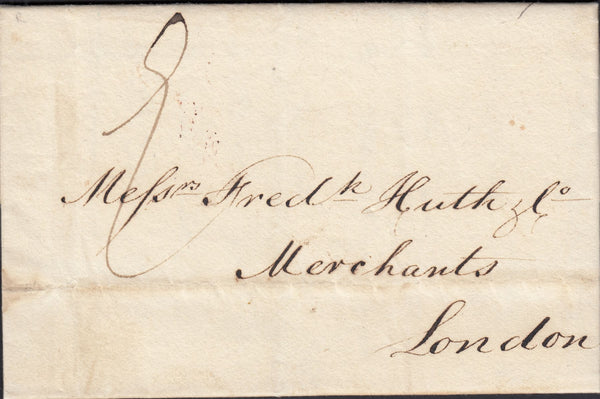 Messrs Fredk Huth & Co
Merchants
London